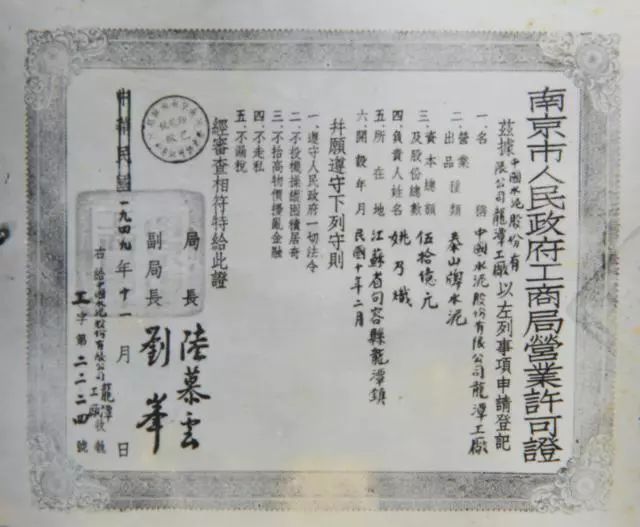 南京市人民政府工商局營業許可證
茲據中國水泥股份有限公司龍潭工廠以左列事項申請登記
一、名稱 中國水泥股份有限公司龍潭工廠
二、營業種類出品 泰山牌水泥
三、資本總額及股份總數 伍拾億元
四、負責人姓名 姚乃熾
五、所在地 江蘇省句容縣龍潭鎮
六、開設年月 民國十年二月
并願遵守下列守則
一、遵守人民政府一切法令
二、不投機操縱囤積居奇
三、不抬高物價擾亂金融
四、不走私
五、不漏稅
經審查相符特給此證
局長 陸慕雲
副局長 劉峯
中華民國一九四九年十一月 日
右給中國水泥股份有限公司龍潭工廠收執
工字第二二二四號